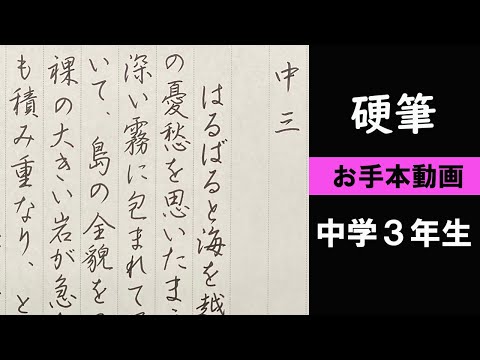 中三
はるばると海を越
の憂愁を思いたま
深い霧に包まれて
いて、島の全貌を
裸の大きい岩が急
も積み重なり、と
硬筆
お手本動画
中学3年生